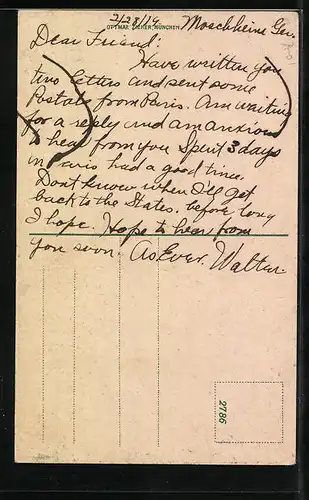 2/28/19 Moschheim Ger.
OTTMAR ZIEHER, MÜNCHEN
Dear Friend:
Have written you
two letters and sent some
Postals from Paris. Am waiting
for a reply and am anxious
to hear from you Spent 3 days
in Paris had a good time.
Dont know when I'll get
back to the States. before long
I hope. Hope to hear from
you soon. As Ever. Walter.
2786